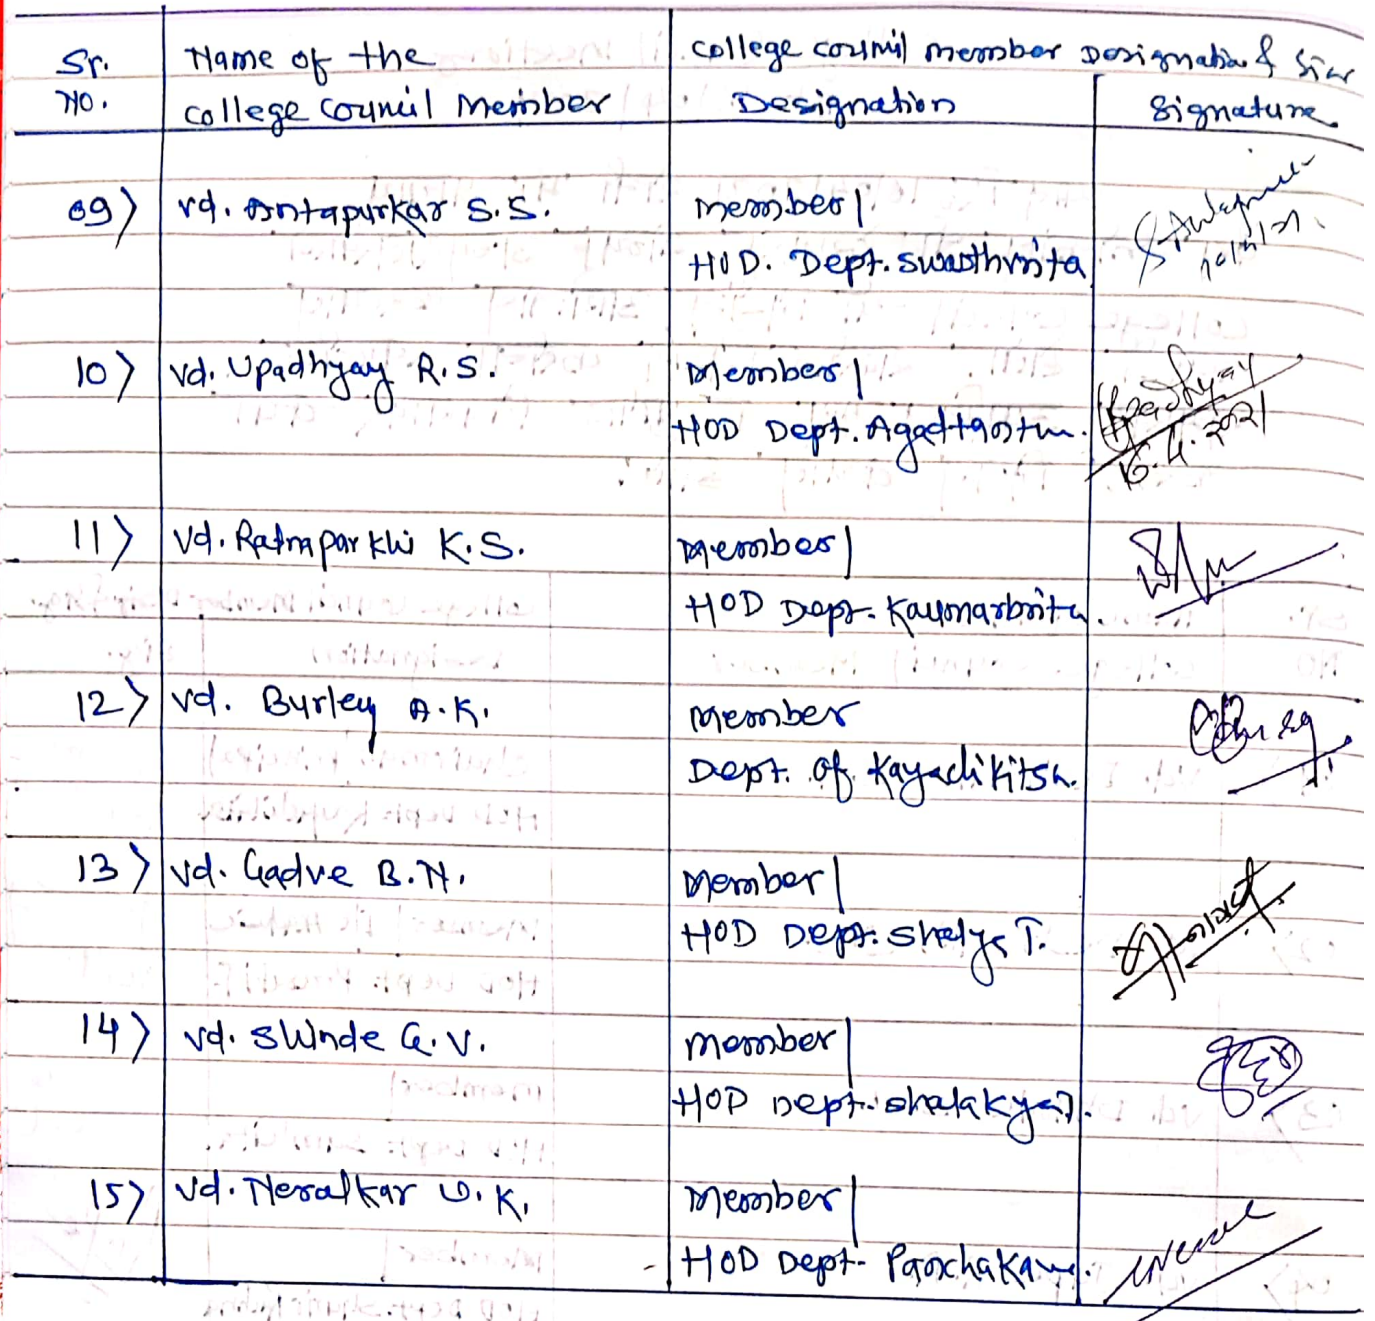 Sr. Name of the College council member Designation & Sign
No. College council Member Designation Signature
09) Vd. Antapurkar S.S. Member /
HOD. Dept. Swasthvrita
10) Vd. Upadhyay R.S. Member / Upadhyay
HOD Dept. Agadtantra. 16.4.2021
11) Vd. Ratnaparkhi K.S. Member /
HOD Dept. Kaumarbrita.
12) Vd. Burley A.K. Member
Dept. of Kayachikitsa.
13) Vd. Gadve B.N. Member /
HOD Dept. Shalya T.
14) Vd. Shinde G.V. Member /
HOD Dept. Shalakya T.
15) Vd. Neralkar U.K. Member /
HOD Dept. Panchakarma.